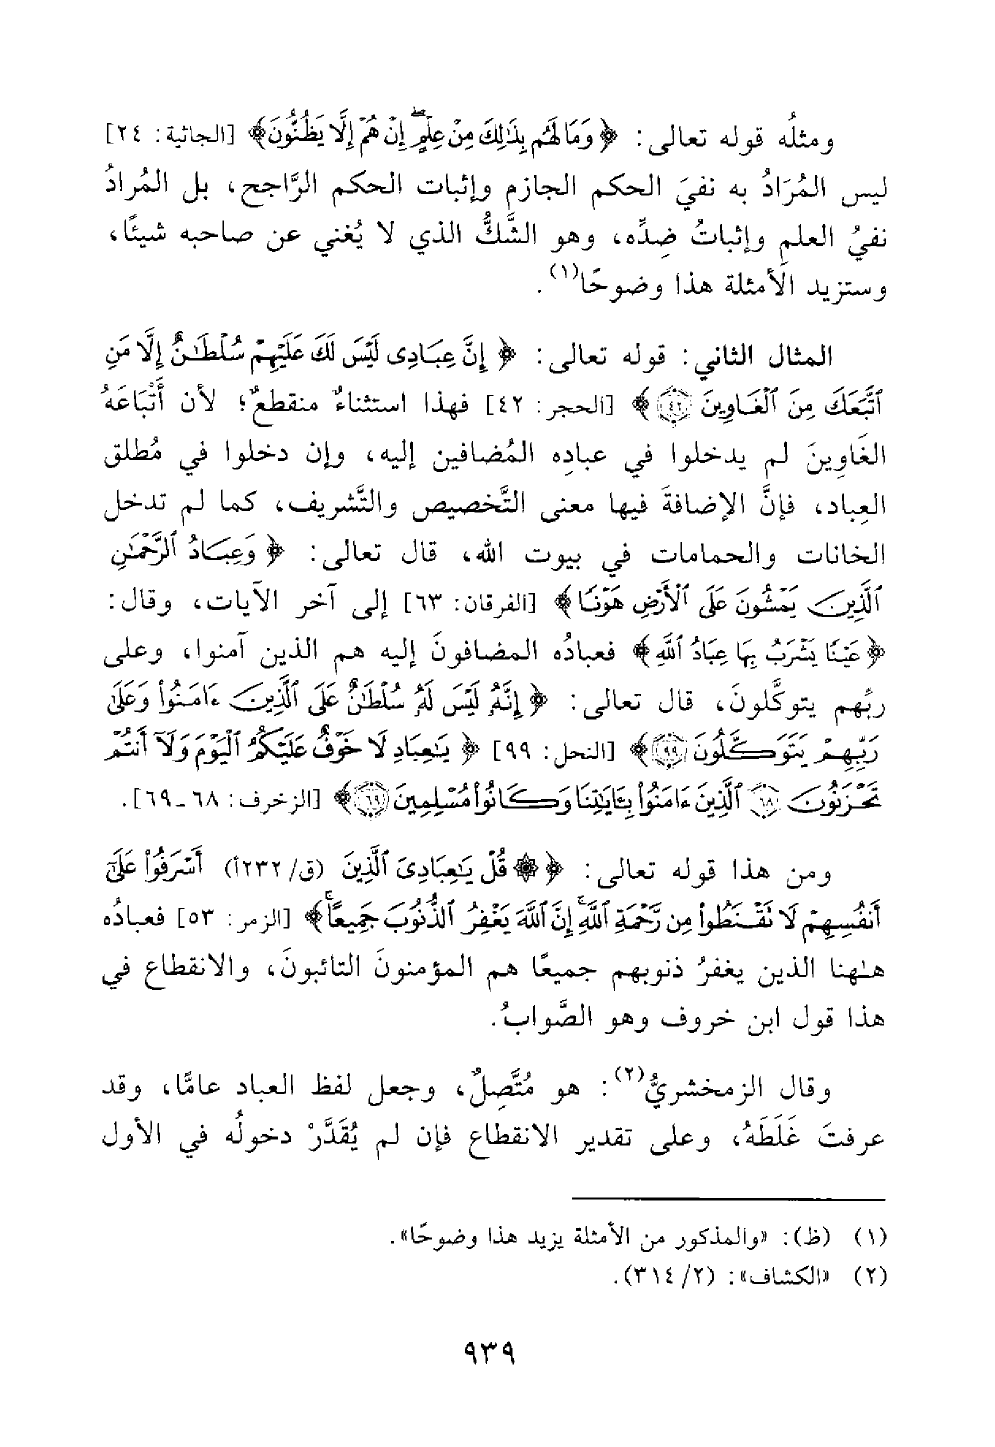 ومثلُه قوله تعالى: ﴿ وَمَا لَهُم بِذَٰلِكَ مِنْ عِلْمٍ ۖ إِنْ هُمْ إِلَّا يَظُنُّونَ﴾ [الجاثية: ٢٤]
ليس المُرَادُ به نفيَ الحكم الجازم وإثبات الحكم الرَّاجح، بل المُرادُ
نفيُ العلمِ وإثباتُ ضِدِّه، وهو الشَّكُّ الذي لا يُغني عن صاحبه شيئًا،
وستزيد الأمثلة هذا وضوحًا(١).
المثال الثاني: قوله تعالى: ﴿ إِنَّ عِبَادِى لَيْسَ لَكَ عَلَيْهِمْ سُلْطَٰنٌ إِلَّا مَنِ
ٱتَّبَعَكَ مِنَ ٱلْغَاوِينَ ٤٢﴾ [الحجر: ٤٢] فهذا استثناءٌ منقطعٌ؛ لأن أَتْبَاعَهُ
الغَاوِينَ لم يدخلوا في عبادِه المُضافين إليه، وإن دخلوا في مُطلق
العِباد، فإنَّ الإضافةَ فيها معنى التَّخصيص والتَّشريف، كما لم تدخل
الخانات والحمامات في بيوت الله، قال تعالى: ﴿ وَعِبَادُ ٱلرَّحْمَٰنِ
ٱلَّذِينَ يَمْشُونَ عَلَى ٱلْأَرْضِ هَوْنًا﴾ [الفرقان: ٦٣] إلى آخر الآيات، وقال:
﴿عَيْنًا يَشْرَبُ بِهَا عِبَادُ ٱللَّهِ﴾ فعبادُه المضافونَ إليه هم الذين آمنوا، وعلى
ربِّهم يتوكَّلونَ، قال تعالى: ﴿ إِنَّهُۥ لَيْسَ لَهُۥ سُلْطَٰنٌ عَلَى ٱلَّذِينَ ءَامَنُوا۟ وَعَلَىٰ
رَبِّهِمْ يَتَوَكَّلُونَ ٩٩﴾ [النحل: ٩٩] ﴿ يَٰعِبَادِ لَا خَوْفٌ عَلَيْكُمُ ٱلْيَوْمَ وَلَآ أَنتُمْ
تَحْزَنُونَ ٦٨ ٱلَّذِينَ ءَامَنُوا۟ بِـَٔايَٰتِنَا وَكَانُوا۟ مُسْلِمِينَ ٦٩﴾ [الزخرف: ٦٨-٦٩].
ومن هذا قوله تعالى: ﴿ ۞ قُلْ يَٰعِبَادِىَ ٱلَّذِينَ (ق/٢٣٢أ) أَسْرَفُوا۟ عَلَىٰٓ
أَنفُسِهِمْ لَا تَقْنَطُوا۟ مِن رَّحْمَةِ ٱللَّهِ ۚ إِنَّ ٱللَّهَ يَغْفِرُ ٱلذُّنُوبَ جَمِيعًا ۚ﴾ [الزمر: ٥٣] فعبادُه
هـٰهنا الذين يغفرُ ذنوبهم جميعًا هم المؤمنونَ التائبونَ، والانقطاع في
هذا قول ابن خروف وهو الصَّوابُ.
وقال الزمخشريُّ(٢): هو مُتَّصِلٌ، وجعل لفظ العباد عامًّا، وقد
عرفتَ غَلَطَهُ، وعلى تقدير الانقطاع فإن لم يُقَدَّرْ دخولُه في الأول
(١) (ظ): «والمذكور من الأمثلة يزيد هذا وضوحًا».
(٢) «الكشاف»: (٢/ ٣١٤).
٩٣٩